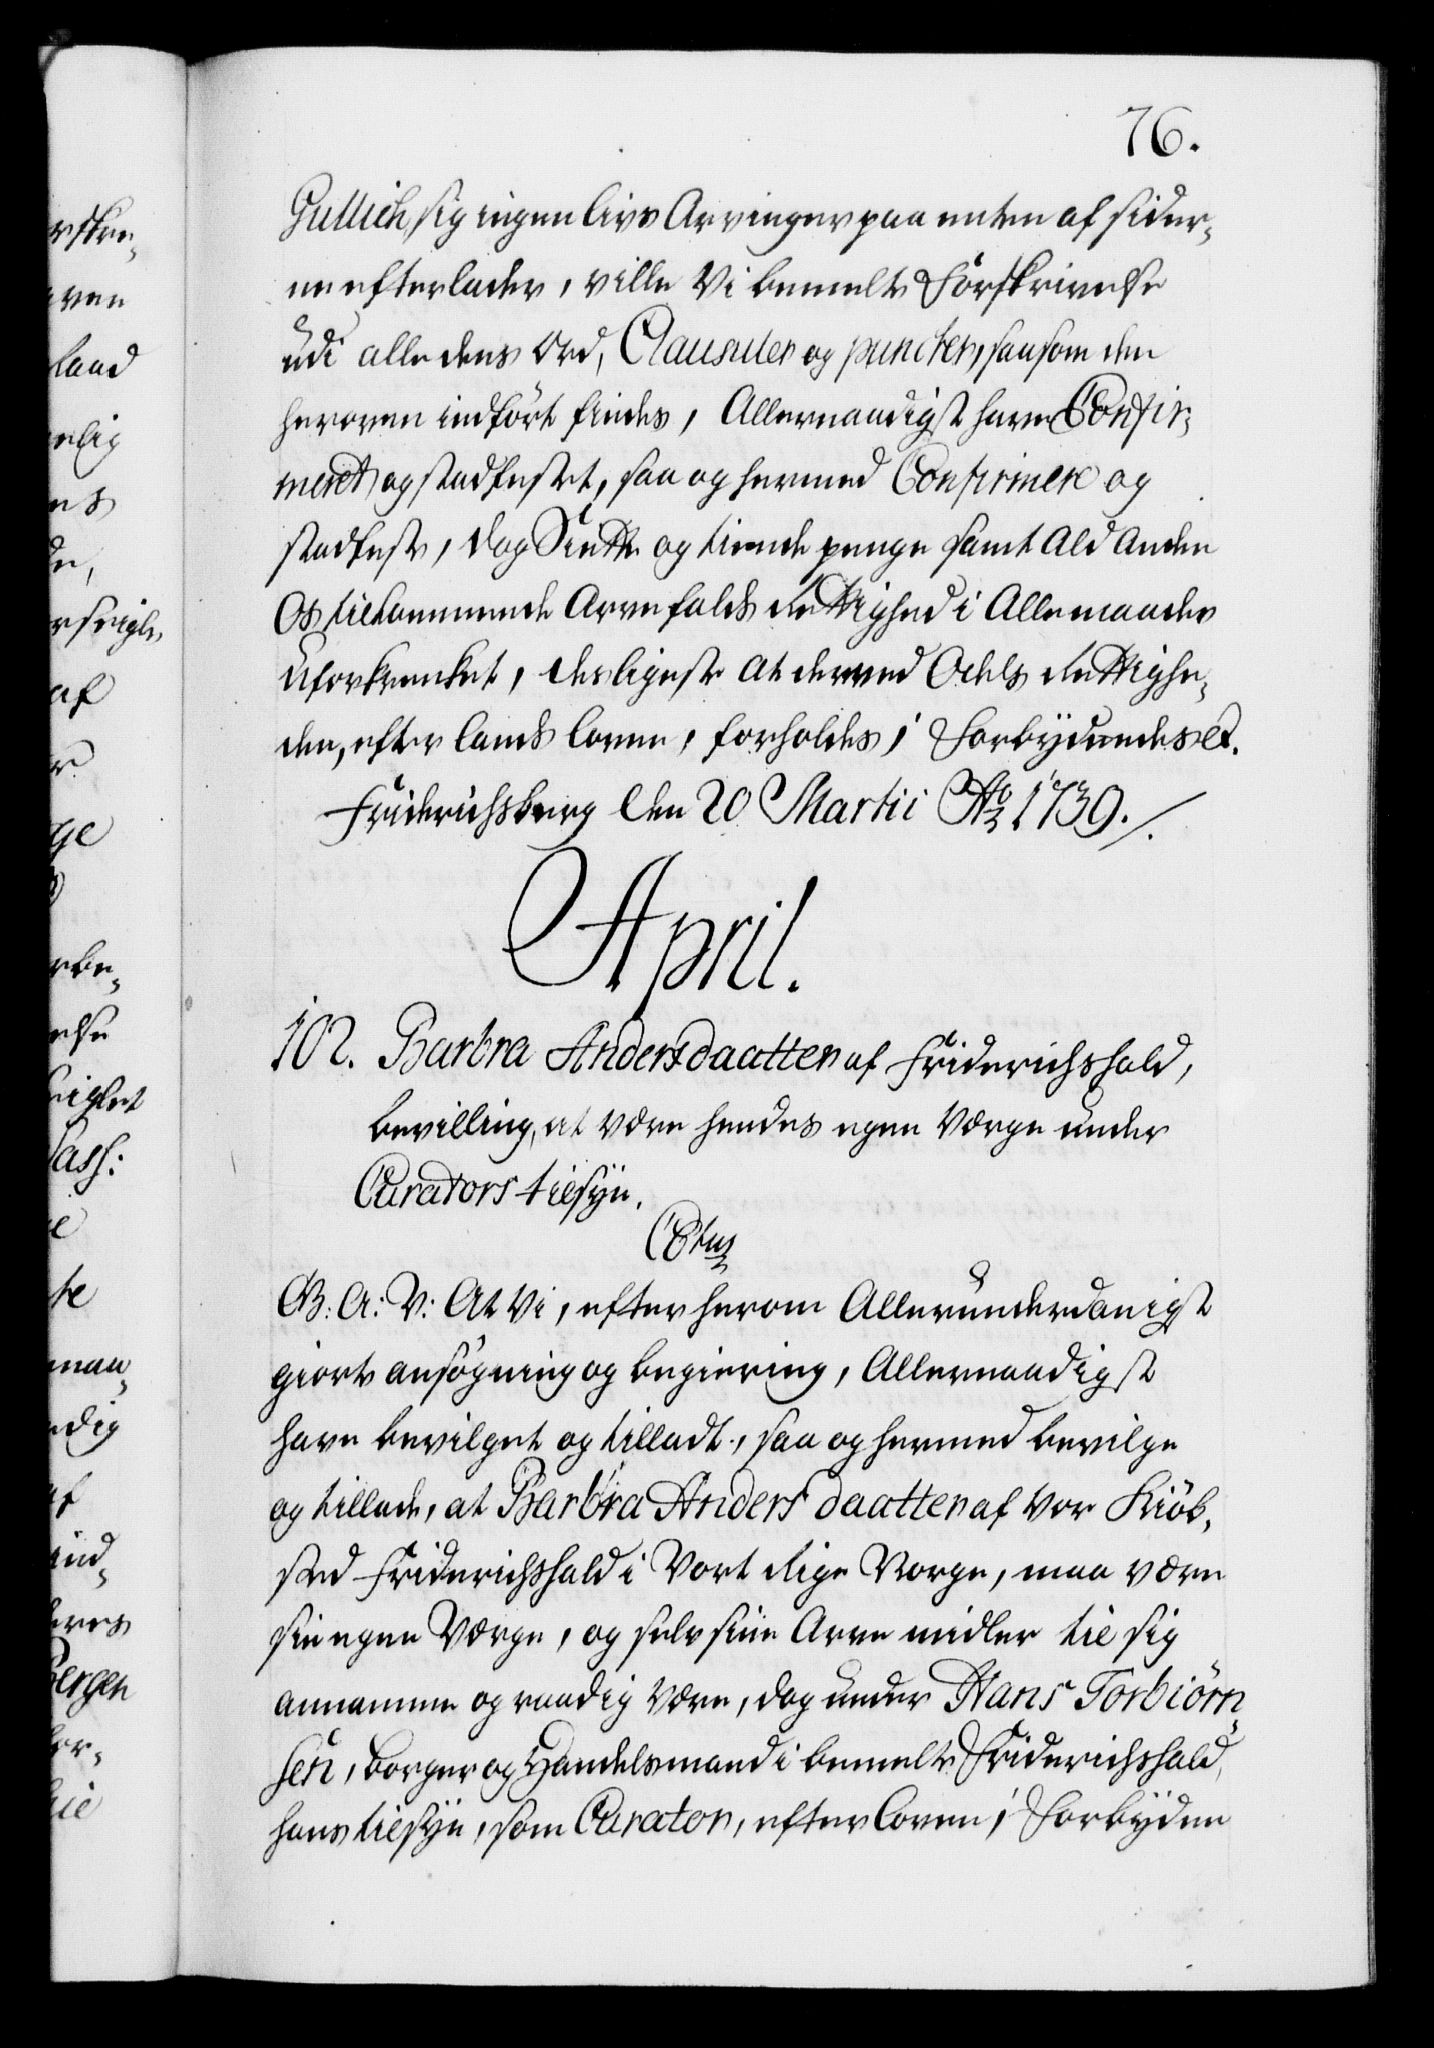 76.
Gullich, sig ingen livs Arvinger paa enten af sider-
ne efterlader, ville Vi bemelte Forskrivelse
udi alle dens Ord, Clausuler og puncter, saasom den
heroven indført findes, Allernaadigst have Confir-
meret og stadfestet, saa og hermed Confirmere og
stadfeste, dog Siette og tiende penge samt Ald anden
Os tilkommende Arvefalds Rettighed i Allemaader
Uforkrenket, desligeste at dermed Odels Rettighe-
den, efter lands loven, forholdes, Forbydendes &.
Friderichsberg Den 20 Martii Ao 1739./.
April.
102. Barbra Andersdaatter af Friderichshald,
bevilling, at være hendes egen Værge under
Curators tilsyn.
G. A: V: At Vi, efter herom Allerunderdanigst
giorte ansøgning og begiering, Allernaadigst
have bevilget og tilladt, saa og hermed bevilge
og tillade, at Barbra Anders daatter af Vor Kiøb-
sted Friderichshald i Vort Rige Norge, maa være
sin egen Værge, og selv sine Arve midler til sig
annamme og raadig være, dog under Hans Torbiørn-
sen, borger og Handelsmand i bemelte Friderichshald,
hans tilsyn, som Curator, efter loven, Forbyden
erskre-
oven
land
elig
ens
de,
erseigle,
af
r.
ge
rbe-
else
eiglet
Cass:
e
te
maa-
ndig
af
ind-
eres
Bergen
for-
hie